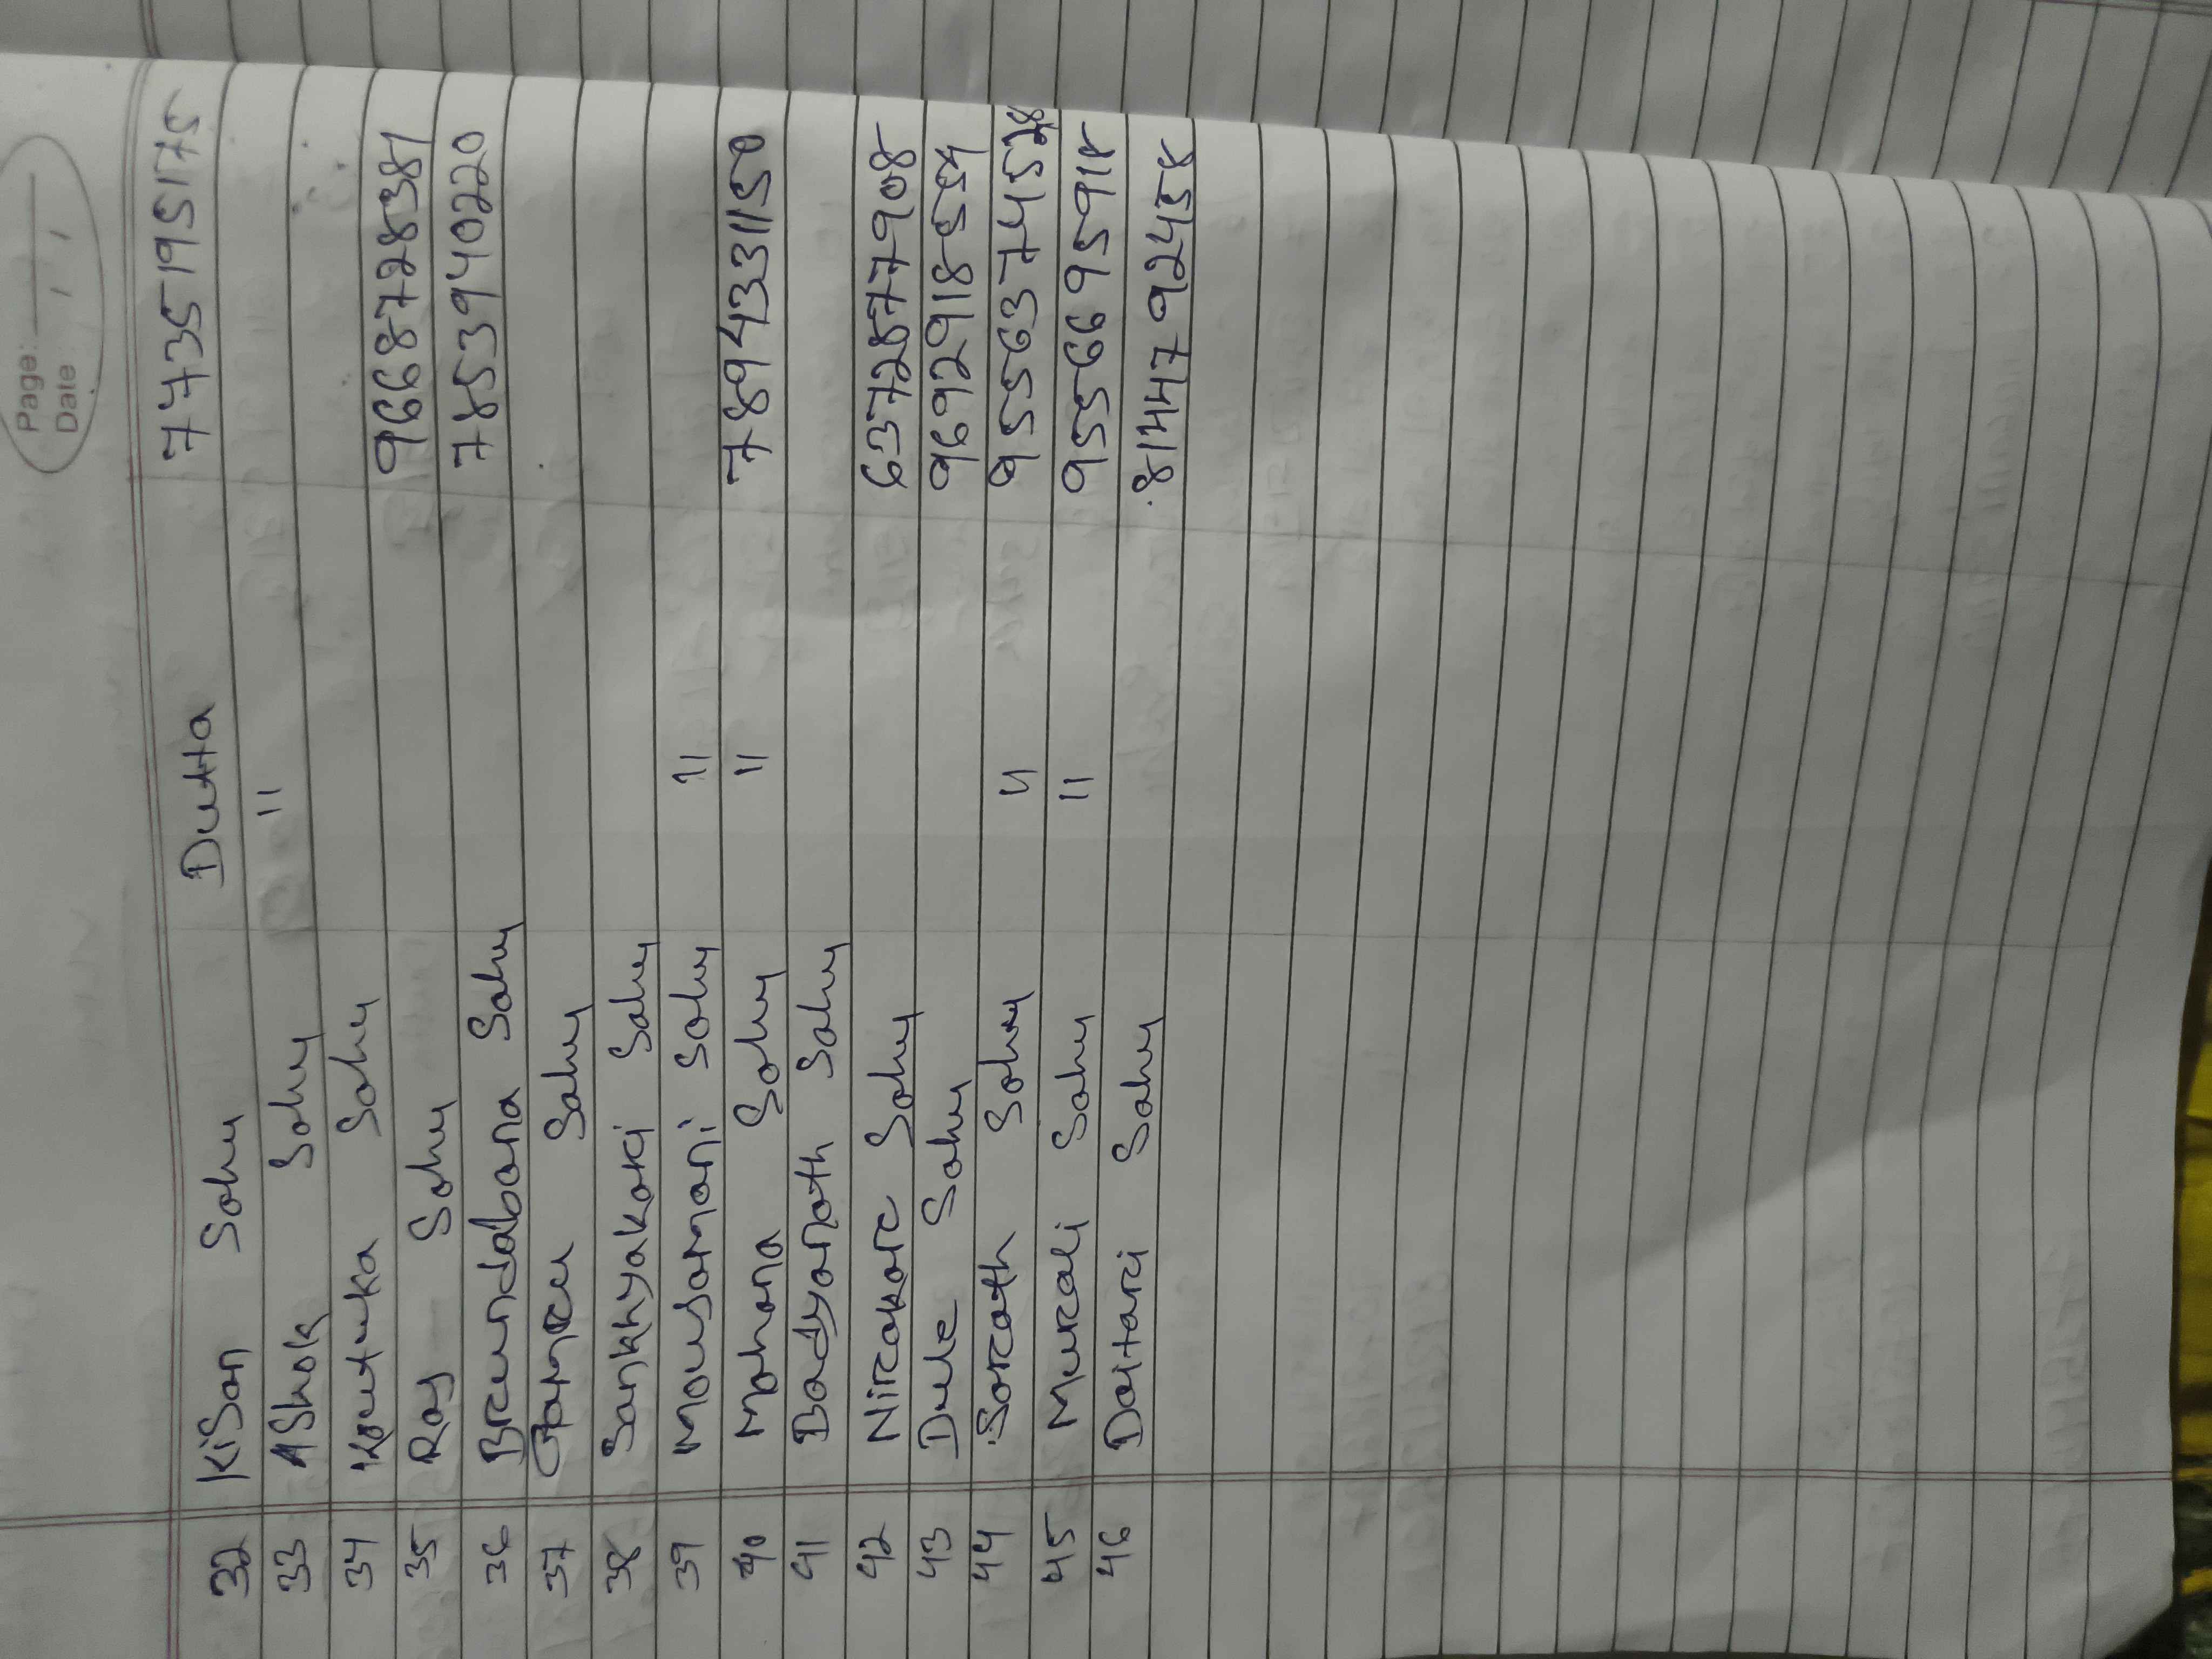 Page:
Date
32 Kisan Sahu Dutta 7435195175
33 Ashok Sahu "
34 Sahu
35 Raj Sahu 9668728381
36 Breundabana Sahu 7853940220
37 Sahu
38 Sankhyakarci Sahu
39 Mousamani Sahu "
40 Mohana Sahu " 7894331150
41 Badyanath Sahu
42 Nircakarc Sahu 6372877908
43 Dule Sahu 9692918554
44 Sarcath Sahu " 9556374528
45 Murcali Sahu " 9556695918
46 Daitarci Sahu 8144792458